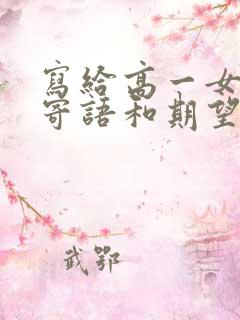 寫給高一女
寄語和期望
武鄂